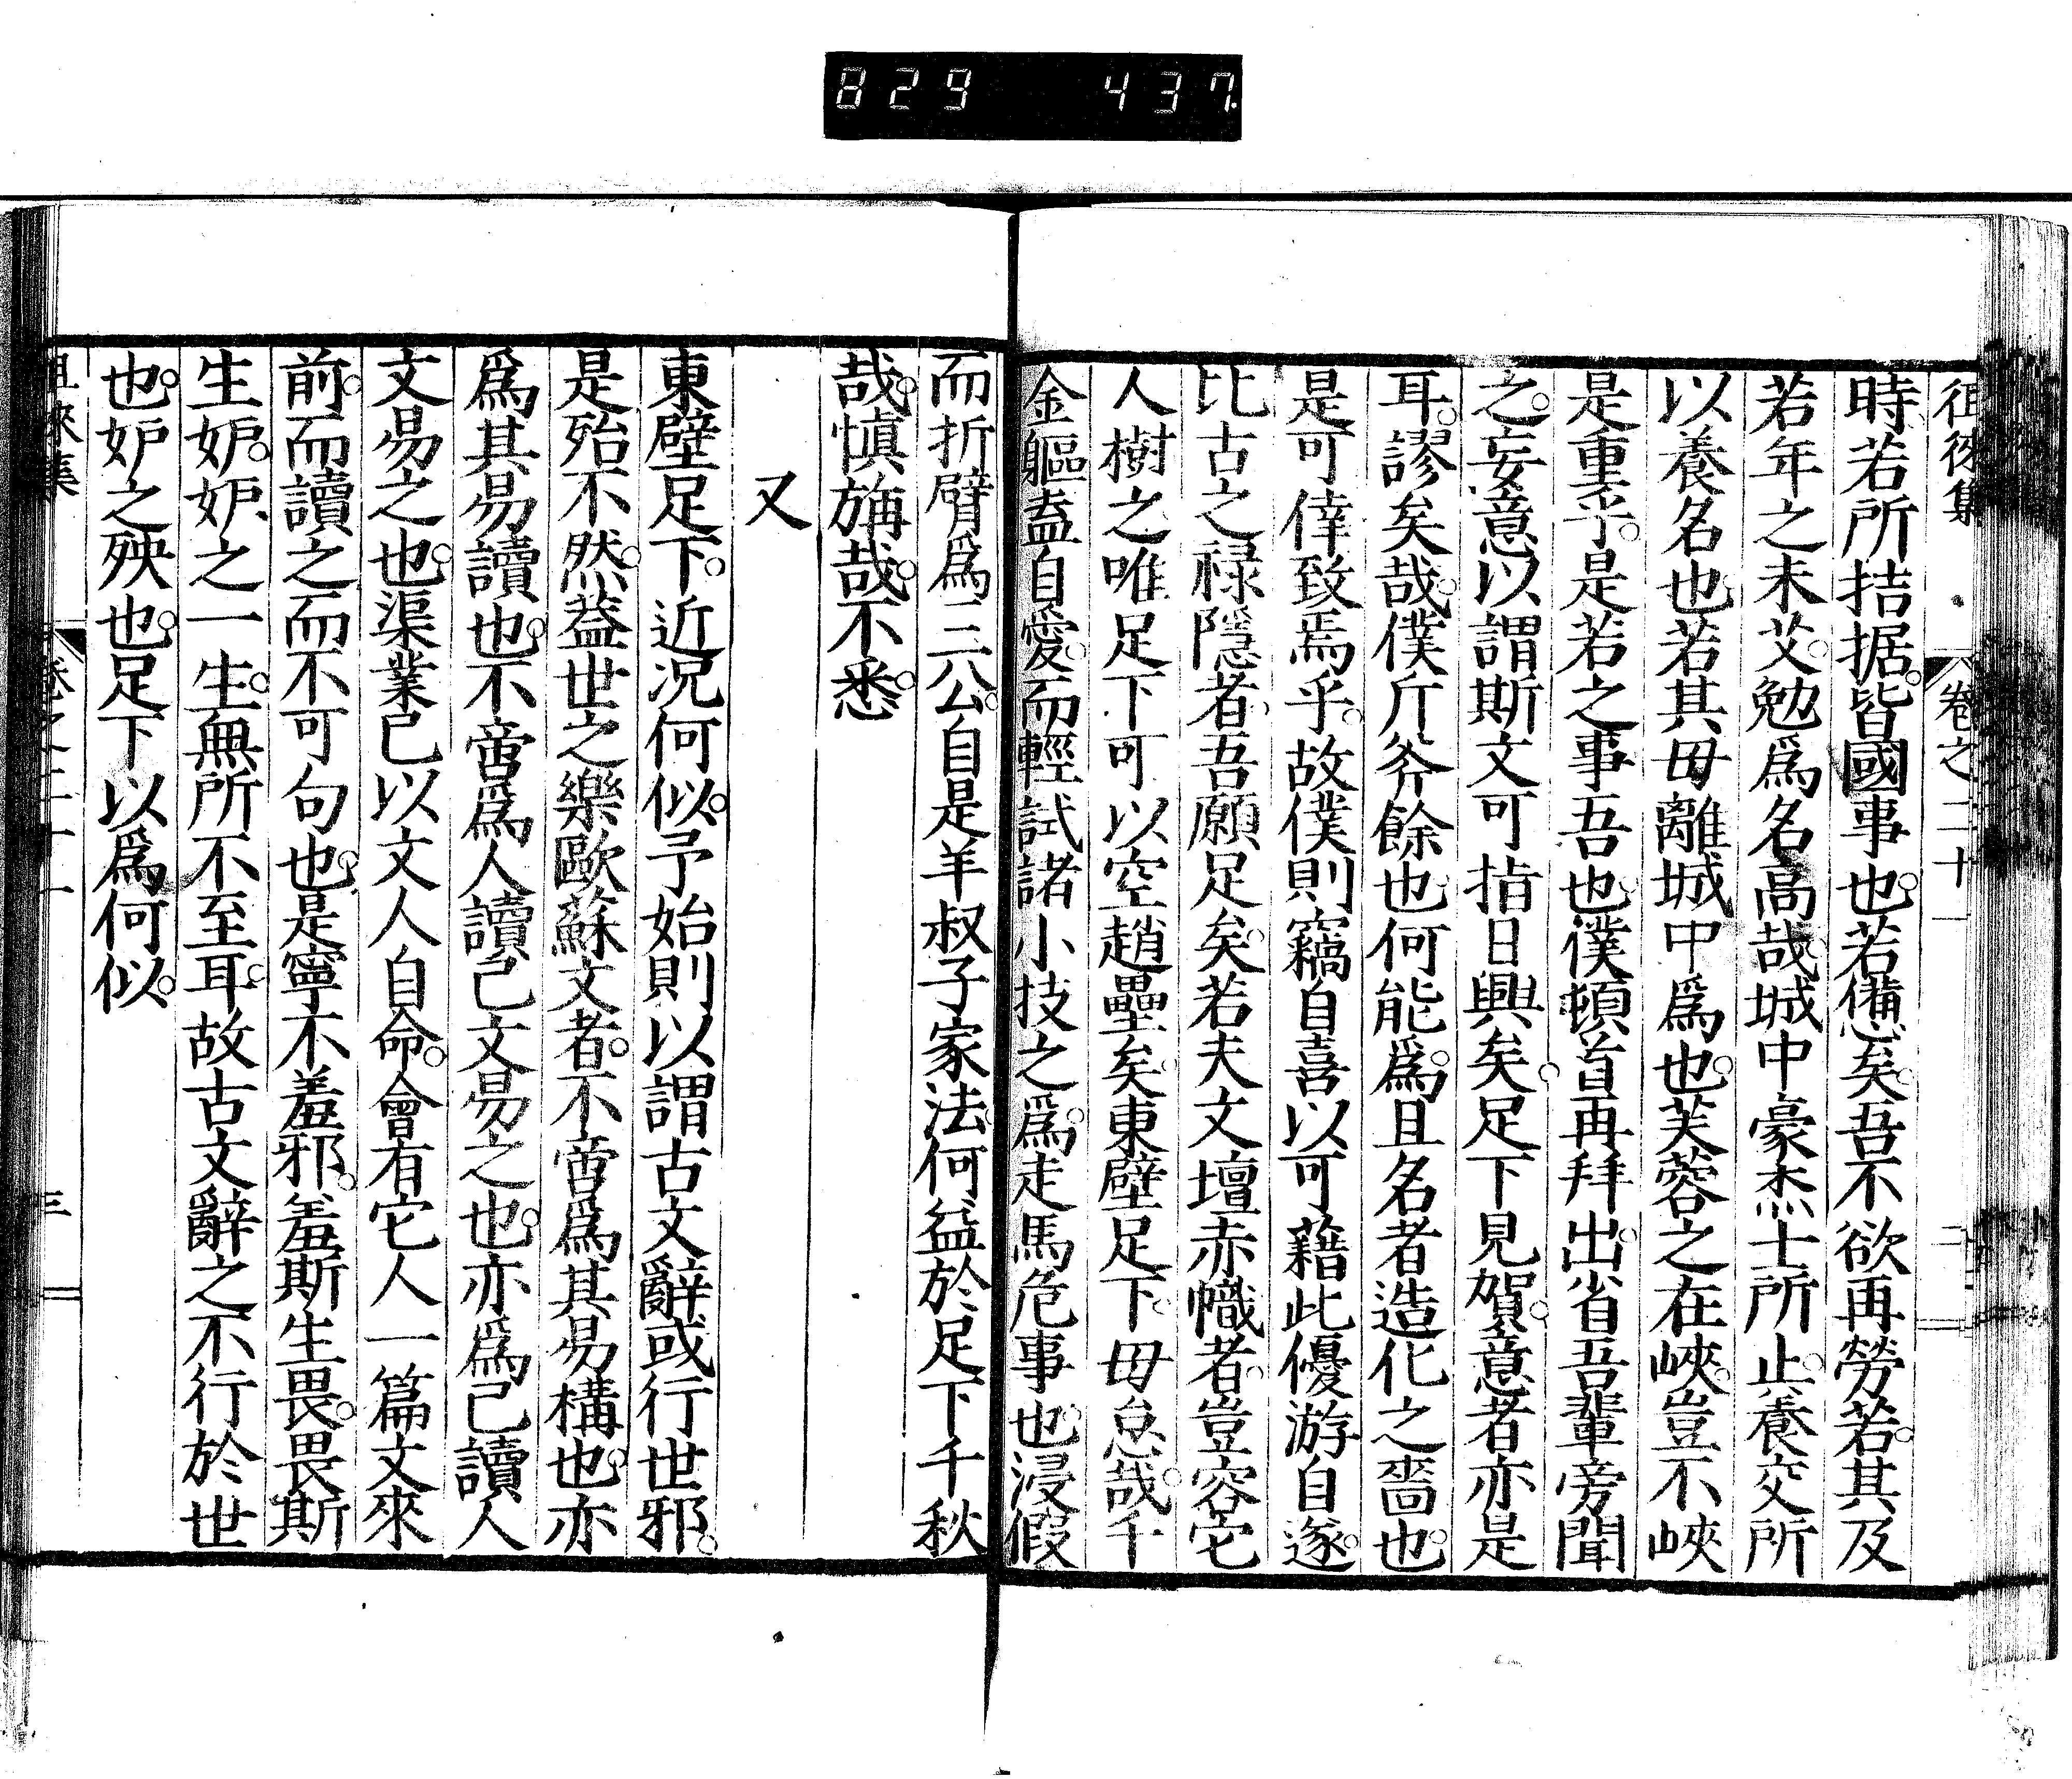 829 437
徂徠集 卷之二十一 二
時若所拮据。皆國事也。若憊矣。吾不欲再勞若。其及
若年之未艾。勉爲名高哉。城中豪杰士所止。養交所
以養名也。若其毋離城中爲也。芙蓉之在峽。豈不峽
是重乎。是若之事吾也。僕頓首再拜出。省吾輩旁聞
之。妄意以謂斯文可指日興矣。足下見賀。意者亦是
耳。謬矣哉。僕斤斧餘也。何能爲。且名者造化之嗇也。
是可倖致焉乎。故僕則竊自喜以可藉此優游自遂。
比古之祿隱者。吾願足矣。若夫文壇赤幟者。豈容它
人樹之。唯足下可以空趙壘矣。東壁足下。毋怠哉。千
金軀盍自愛。而輕試諸小技之爲。走馬危事也。浸假
而折臂爲三公。自是羊叔子家法。何益於足下千秋
哉。愼旃哉。不悉。
又
東壁足下。近況何似。予始則以謂古文辭或行世邪。
是殆不然。蓋世之樂歐蘇文者。不啻爲其易構也。亦
爲其易讀也。不啻爲人讀己文易之也。亦爲己讀人
文易之也。渠業已以文人自命。會有它人一篇文來
前。而讀之而不可句也。是寧不羞邪。羞斯生畏。畏斯
生妒。妒之一生。無所不至耳。故古文辭之不行於世
也。妒之殃也。足下以爲何似。
徂徠集 卷之二十一 三